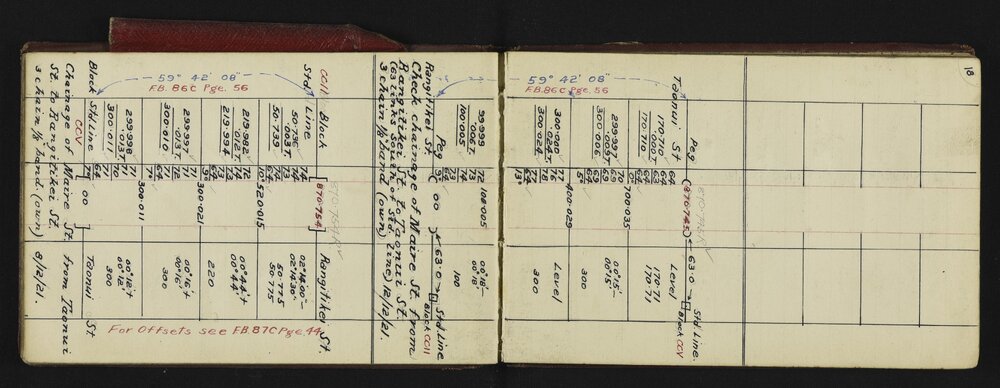 18
Chainage of Maire St. from Taonui
St. to Rangitikei St.
3 chain 1/8 band (own) 8/12/21.
Block CCV
Std Line
00
Taonui St
59° 42' 08"
F.B. 86C Pge. 56
299.998
.013 T.
300.011
64
71
70
71
00° 12' t
00° 12'
300
300.011
299.997
.013 T.
300.010
64
72
71
77
00° 16' t
00° 16'
300
300.021
219.982
.012 T.
219.994
64
74
72
73
00° 44' t
00° 44'
220
520.015
50.736
.003 T.
50.739
02° 14' 00"
02° 14' 30"
50.775
50.775
CCII Block
Std Line
[870.754]
Rangitikei St.
For Offsets see F.B. 87C Pge. 44
Check chainage of Maire St. from
Rangitikei St. to Taonui St.
(63 links South of Std. line) 12/12/21.
3 chain 1/8 band (own)
Rangitikei St.
Peg
00
63.0
Std Line
Block CCII
59° 42' 08"
F.B. 86C Pge. 56
99.999
.006 T.
100.005
72
73
00° 18'
00° 18'
100
100.005
300.000
.024 T.
300.024
Level
300
400.029
299.997
.009 T.
300.006
00° 15'
00° 15'
300
700.035
170.710
.000 T.
170.710
Level
170.71
170.71
Taonui St
Peg
(870.745)
63.0
Std Line.
Block CCV